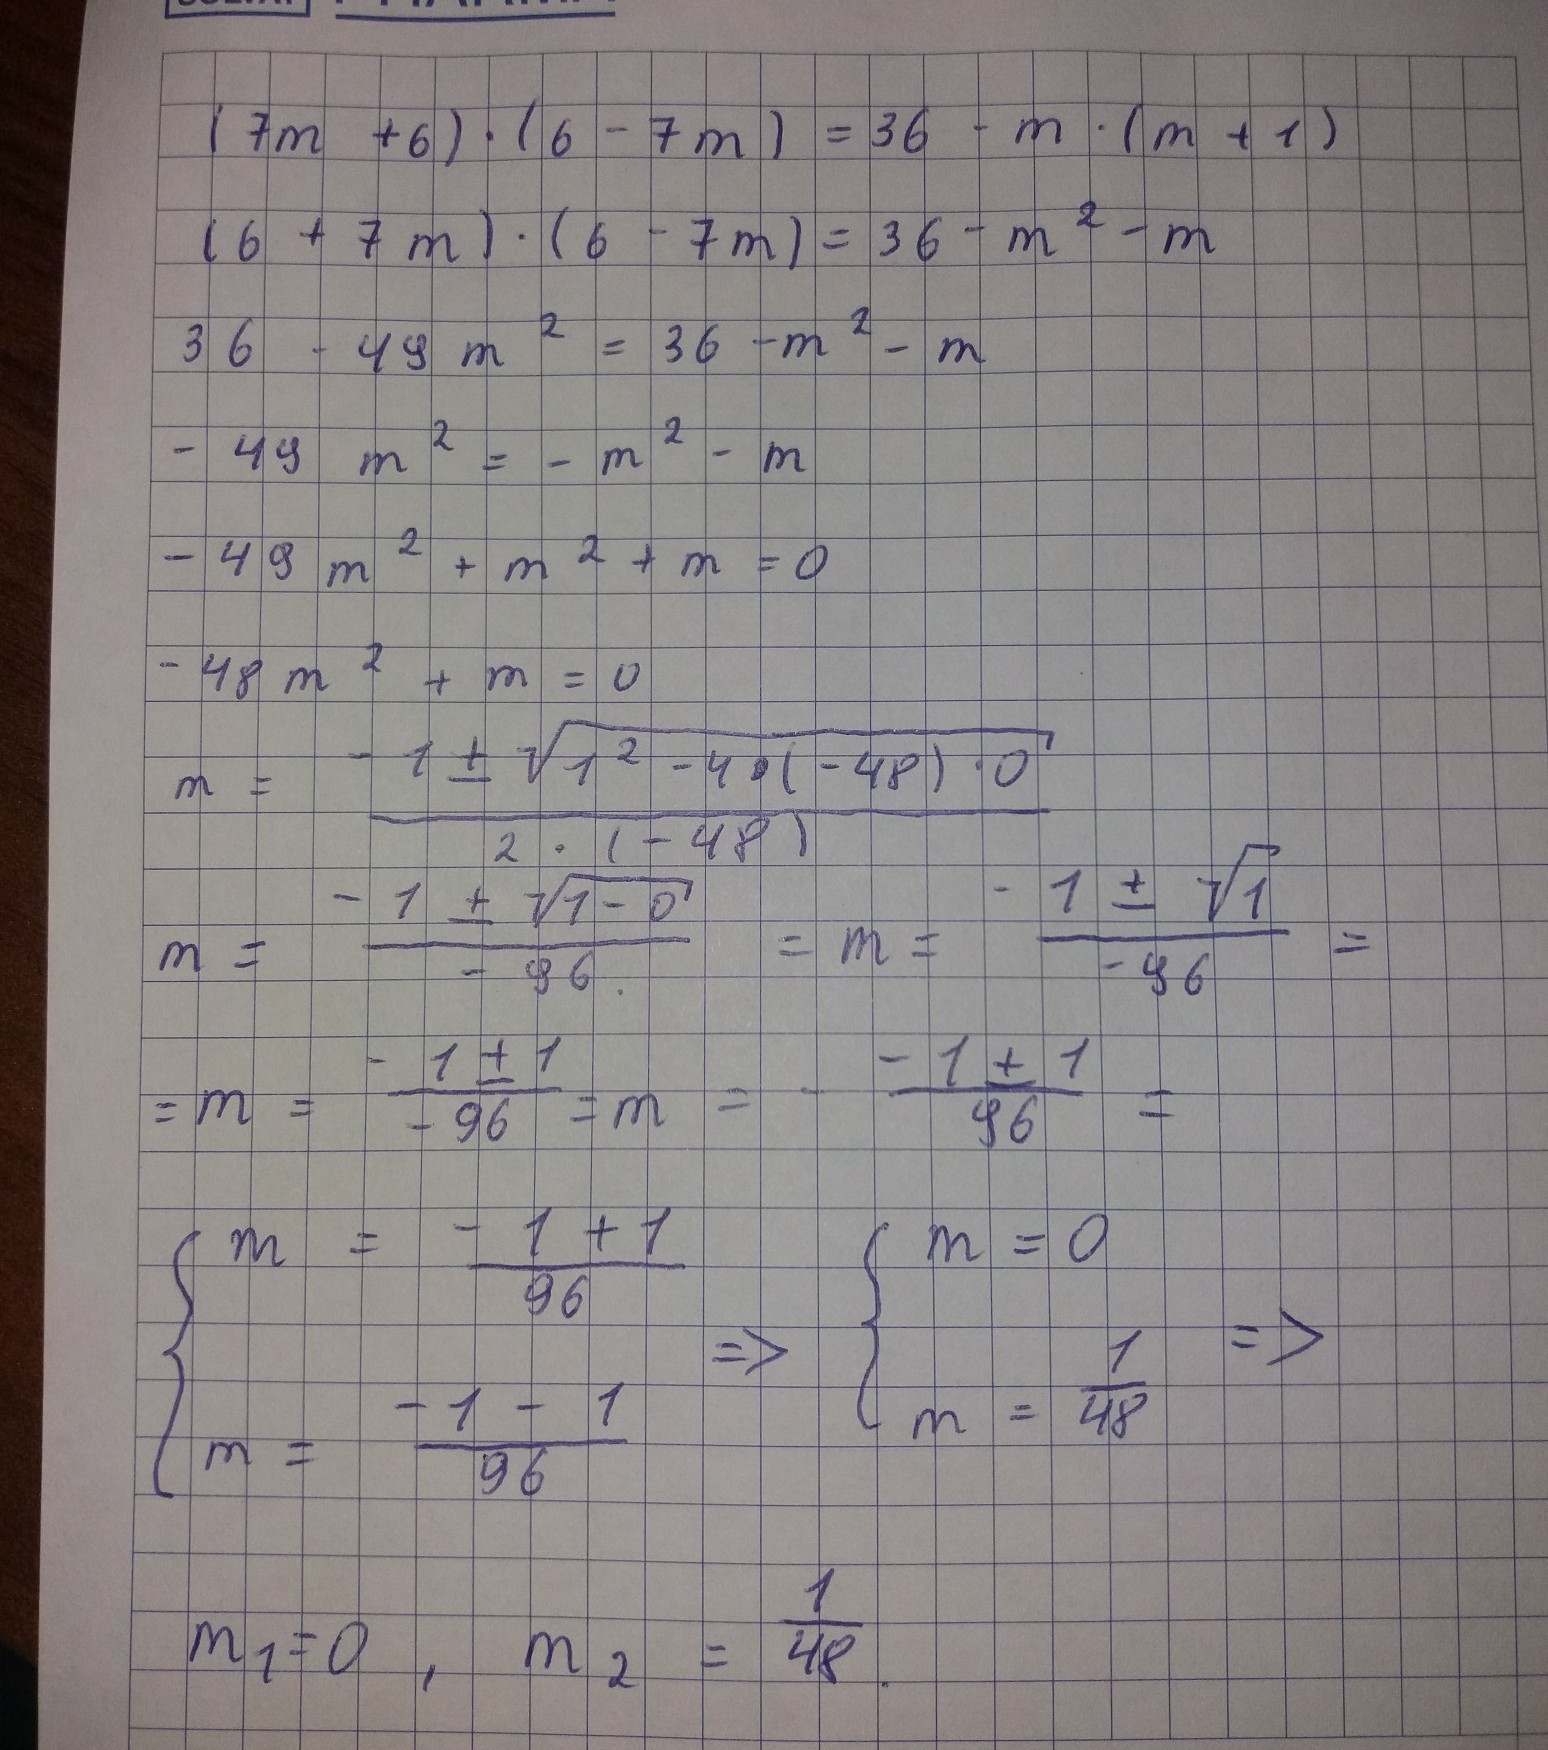 (7m + 6) · (6 - 7m) = 36 - m · (m + 1)
(6 + 7m) · (6 - 7m) = 36 - m² - m
36 - 49m² = 36 - m² - m
- 49m² = - m² - m
- 49m² + m² + m = 0
- 48m² + m = 0
m = (- 1 ± √(1² - 4 · (- 48) · 0)) / (2 · (- 48))
m = (- 1 ± √(1 - 0)) / (- 96) = m = (- 1 ± √1) / (- 96) =
= m = (- 1 ± 1) / (- 96) = m = - (- 1 ± 1) / 96 =
{ m = (- 1 + 1) / 96
m = (- 1 - 1) / 96 => { m = 0
m = 1/48 =>
m₁ = 0 , m₂ = 1/48 .